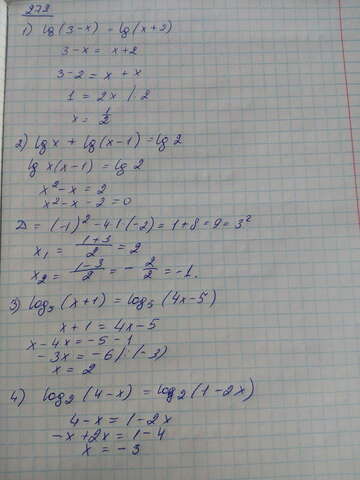 272
1) lg(3-x) = lg(x+2)
3-x = x+2
3-2 = x+x
1 = 2x /2
x = 1/2
2) lg x + lg(x-1) = lg 2
lg x(x-1) = lg 2
x² - x = 2
x² - x - 2 = 0
D = (-1)² - 4·1·(-2) = 1+8 = 9 = 3²
x₁ = (1+3)/2 = 2
x₂ = (1-3)/2 = -2/2 = -1.
3) log₅(x+1) = log₅(4x-5)
x+1 = 4x-5
x-4x = -5-1
-3x = -6 /(-3)
x = 2
4) log₂(4-x) = log₂(1-2x)
4-x = 1-2x
-x+2x = 1-4
x = -3